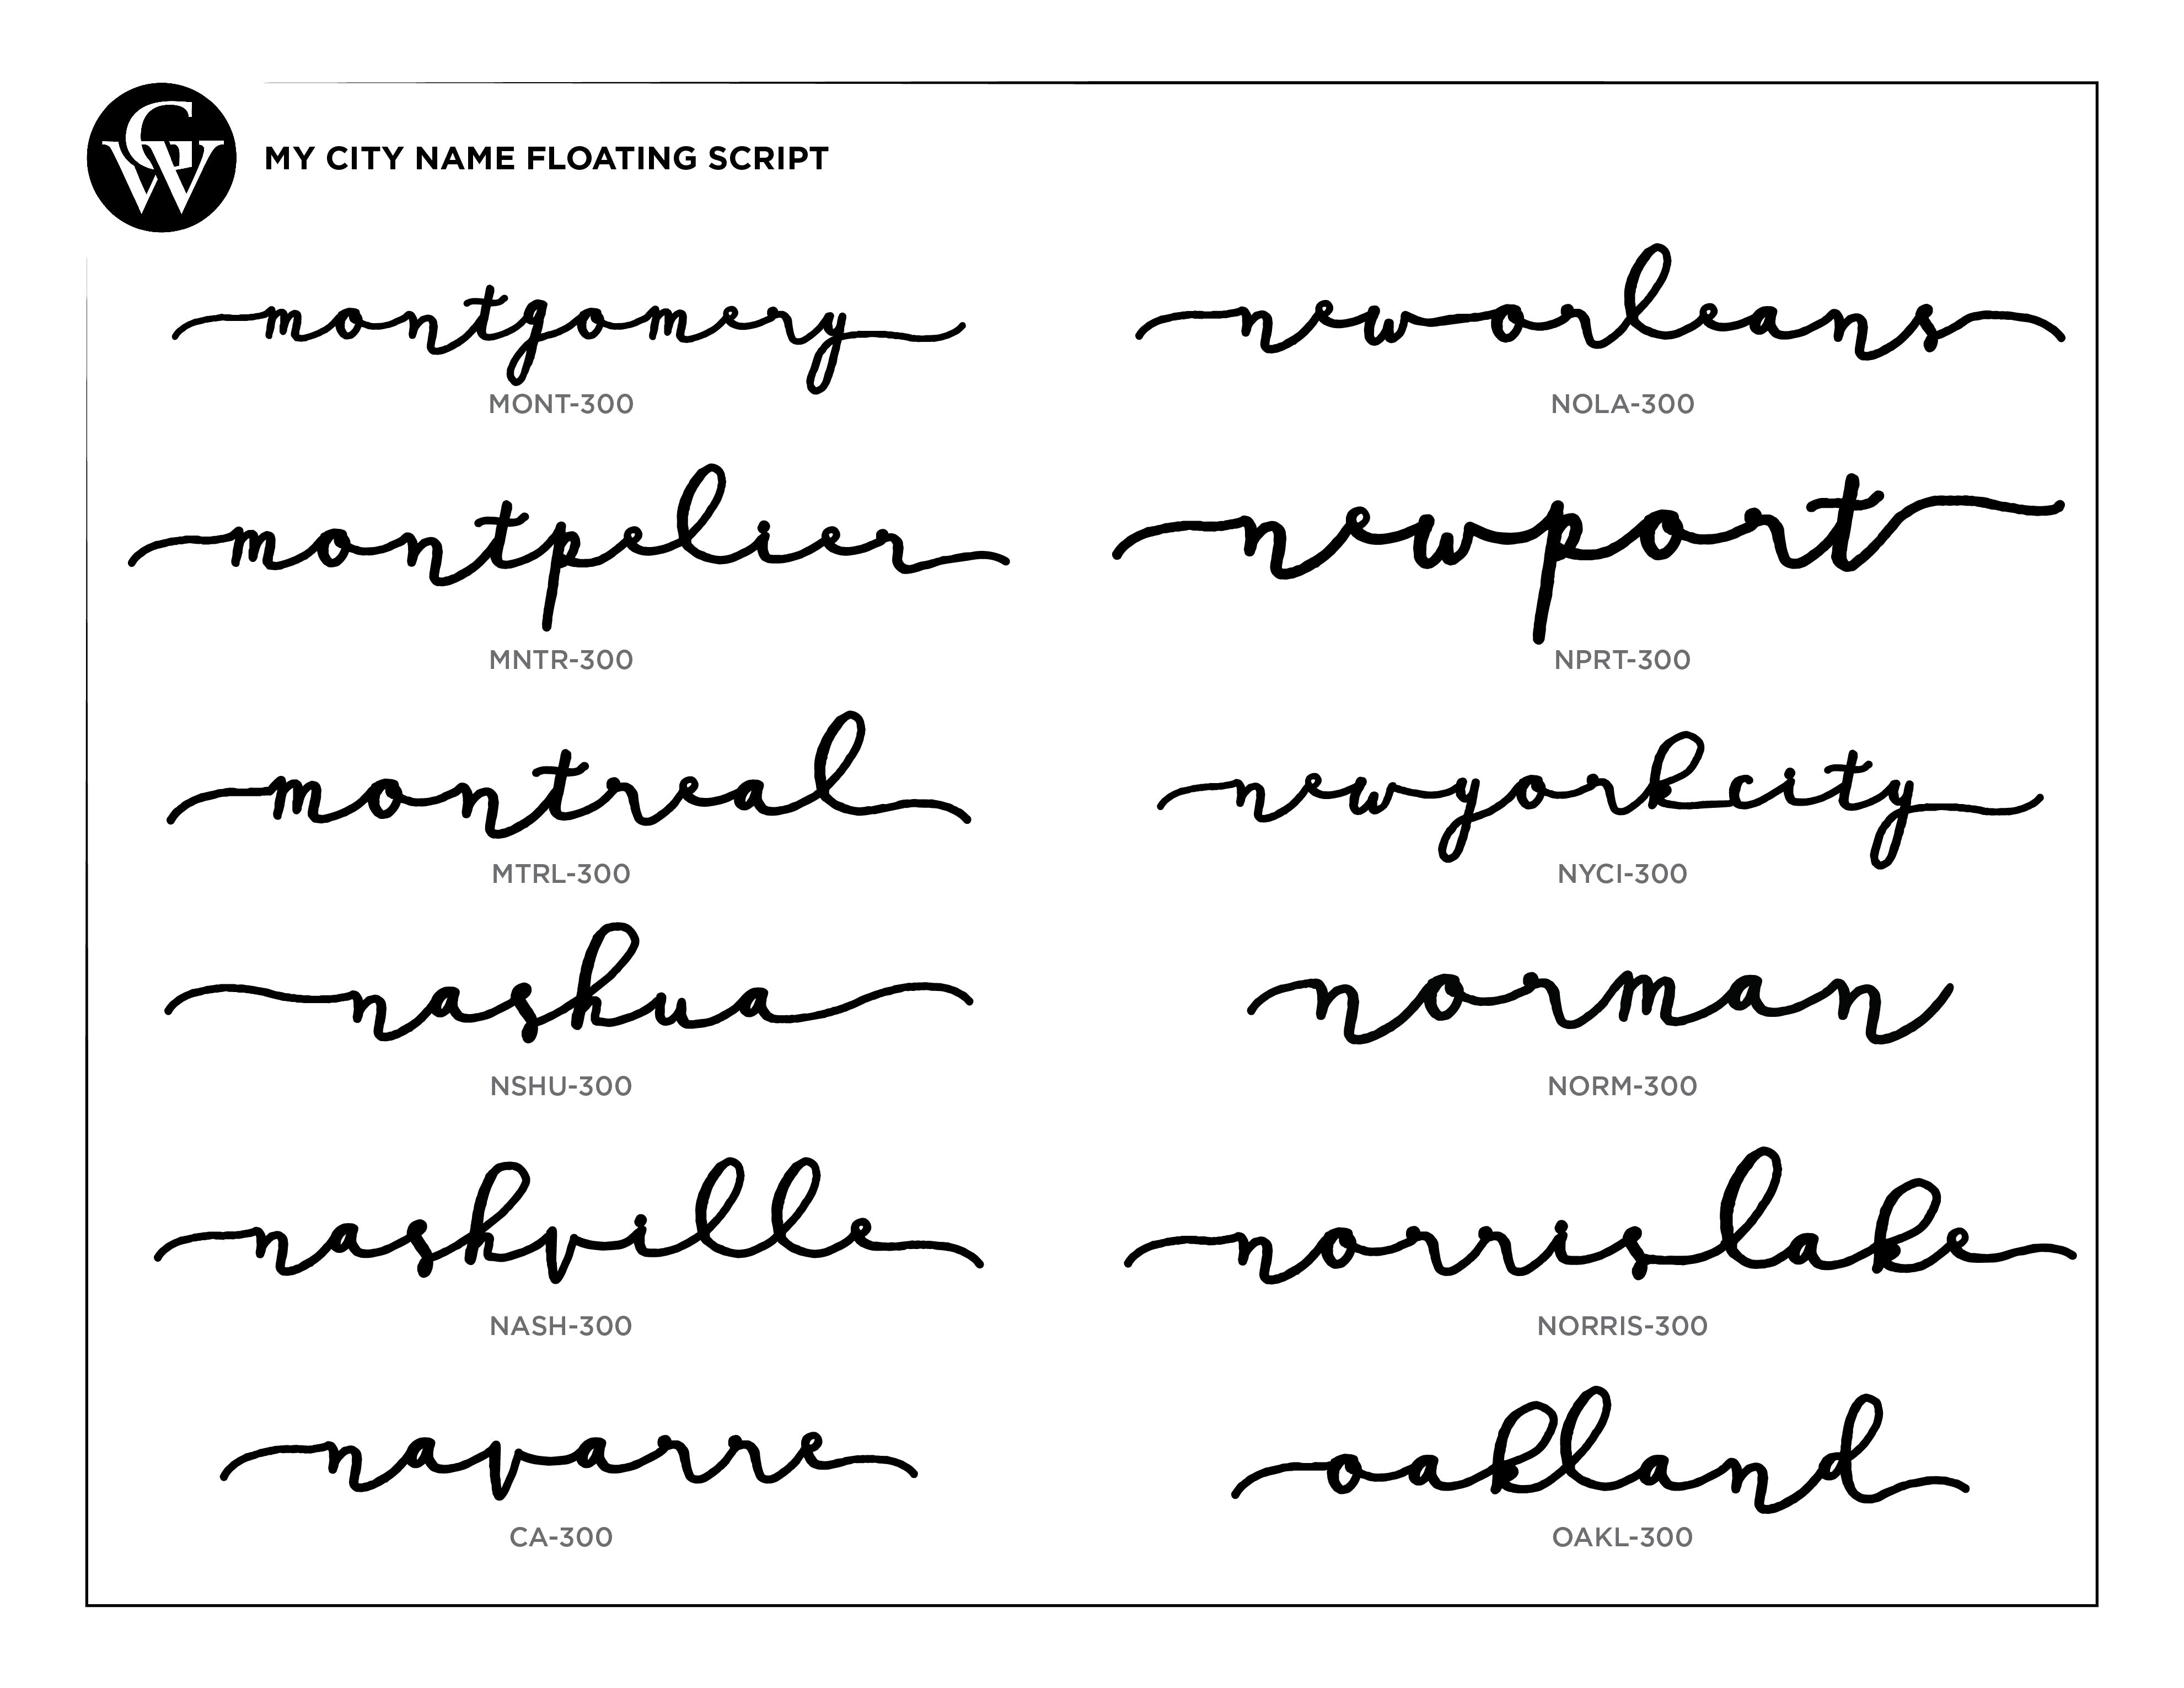 GW
MY CITY NAME FLOATING SCRIPT
montgomery
MONT-300
montpelier
MNTR-300
montreal
MTRL-300
nashua
NSHU-300
nashville
NASH-300
navarre
CA-300
neworleans
NOLA-300
newport
NPRT-300
newyorkcity
NYCI-300
norman
NORM-300
norrislake
NORRIS-300
oakland
OAKL-300